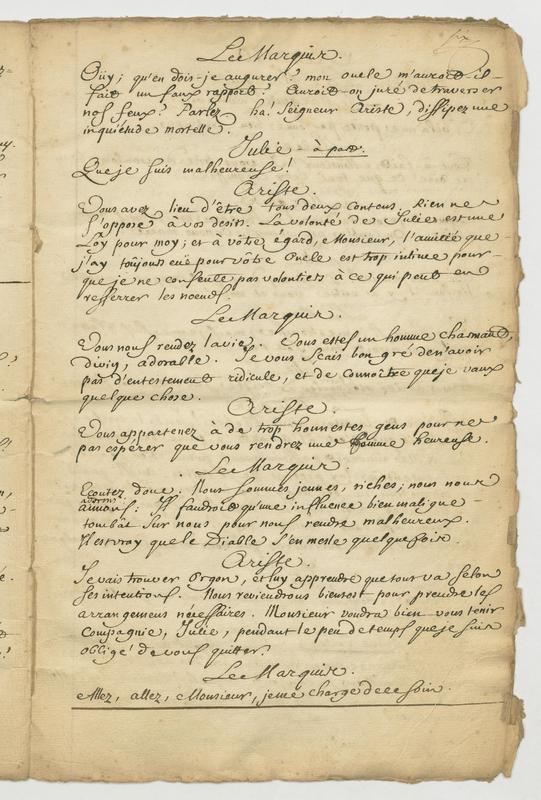 six
Le Marquis.
Oüy; qu'en dois-je augurer? mon oncle m'auroit-il
fait un faux rapport? Auroit-on juré de traverser
nos feux? Parlez, ha! Seigneur Ariste, dissipez une
inquiétude mortelle.
Julie - à part.
Que je suis malheureuse!
Ariste.
Vous avez lieu d'être tous deux contens. Rien ne
s'oppose à vos desirs. La volonté de Julie est une
Loy pour moy; et à vôtre égard, Monsieur, l'amitié que
j'ay toûjours eüe pour vôtre Oncle est trop intime pour
que je ne consente pas volontiers à ce qui peut en
resserrer les noeuds.
Le Marquis.
Vous nous rendez la vie. Vous estes un homme charmant,
divin, adorable. Je vous sçais bon gré de n'avoir
pas d'entestement ridicule, et de connoître que je vaux
quelque chose.
Ariste.
Vous appartenez à de trop honnestes gens pour ne
pas espérer que vous rendrez une femme heureuse.
Le Marquis.
Ecoutez donc: Nous sommes jeunes, riches; nous nous
aimons: Il faudroit qu'une influence bien maligne
tombât sur nous pour nous rendre malheureux.
Il est vray que le Diable s'en mesle quelque fois.
Ariste.
Je vais trouver Orgon, et luy apprendre que tout va selon
ses intentions. Nous reviendrons bientost pour prendre les
arrangemens nécessaires. Monsieur voudra bien vous tenir
Compagnie, Julie, pendant le peu de temps que je suis
obligé de vous quitter.
Le Marquis.
Allez, allez, Monsieur, je me charge de ce soin.